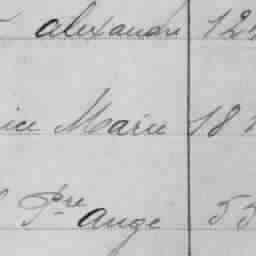 alexandre 12
Marie 18
Pre Ange 55